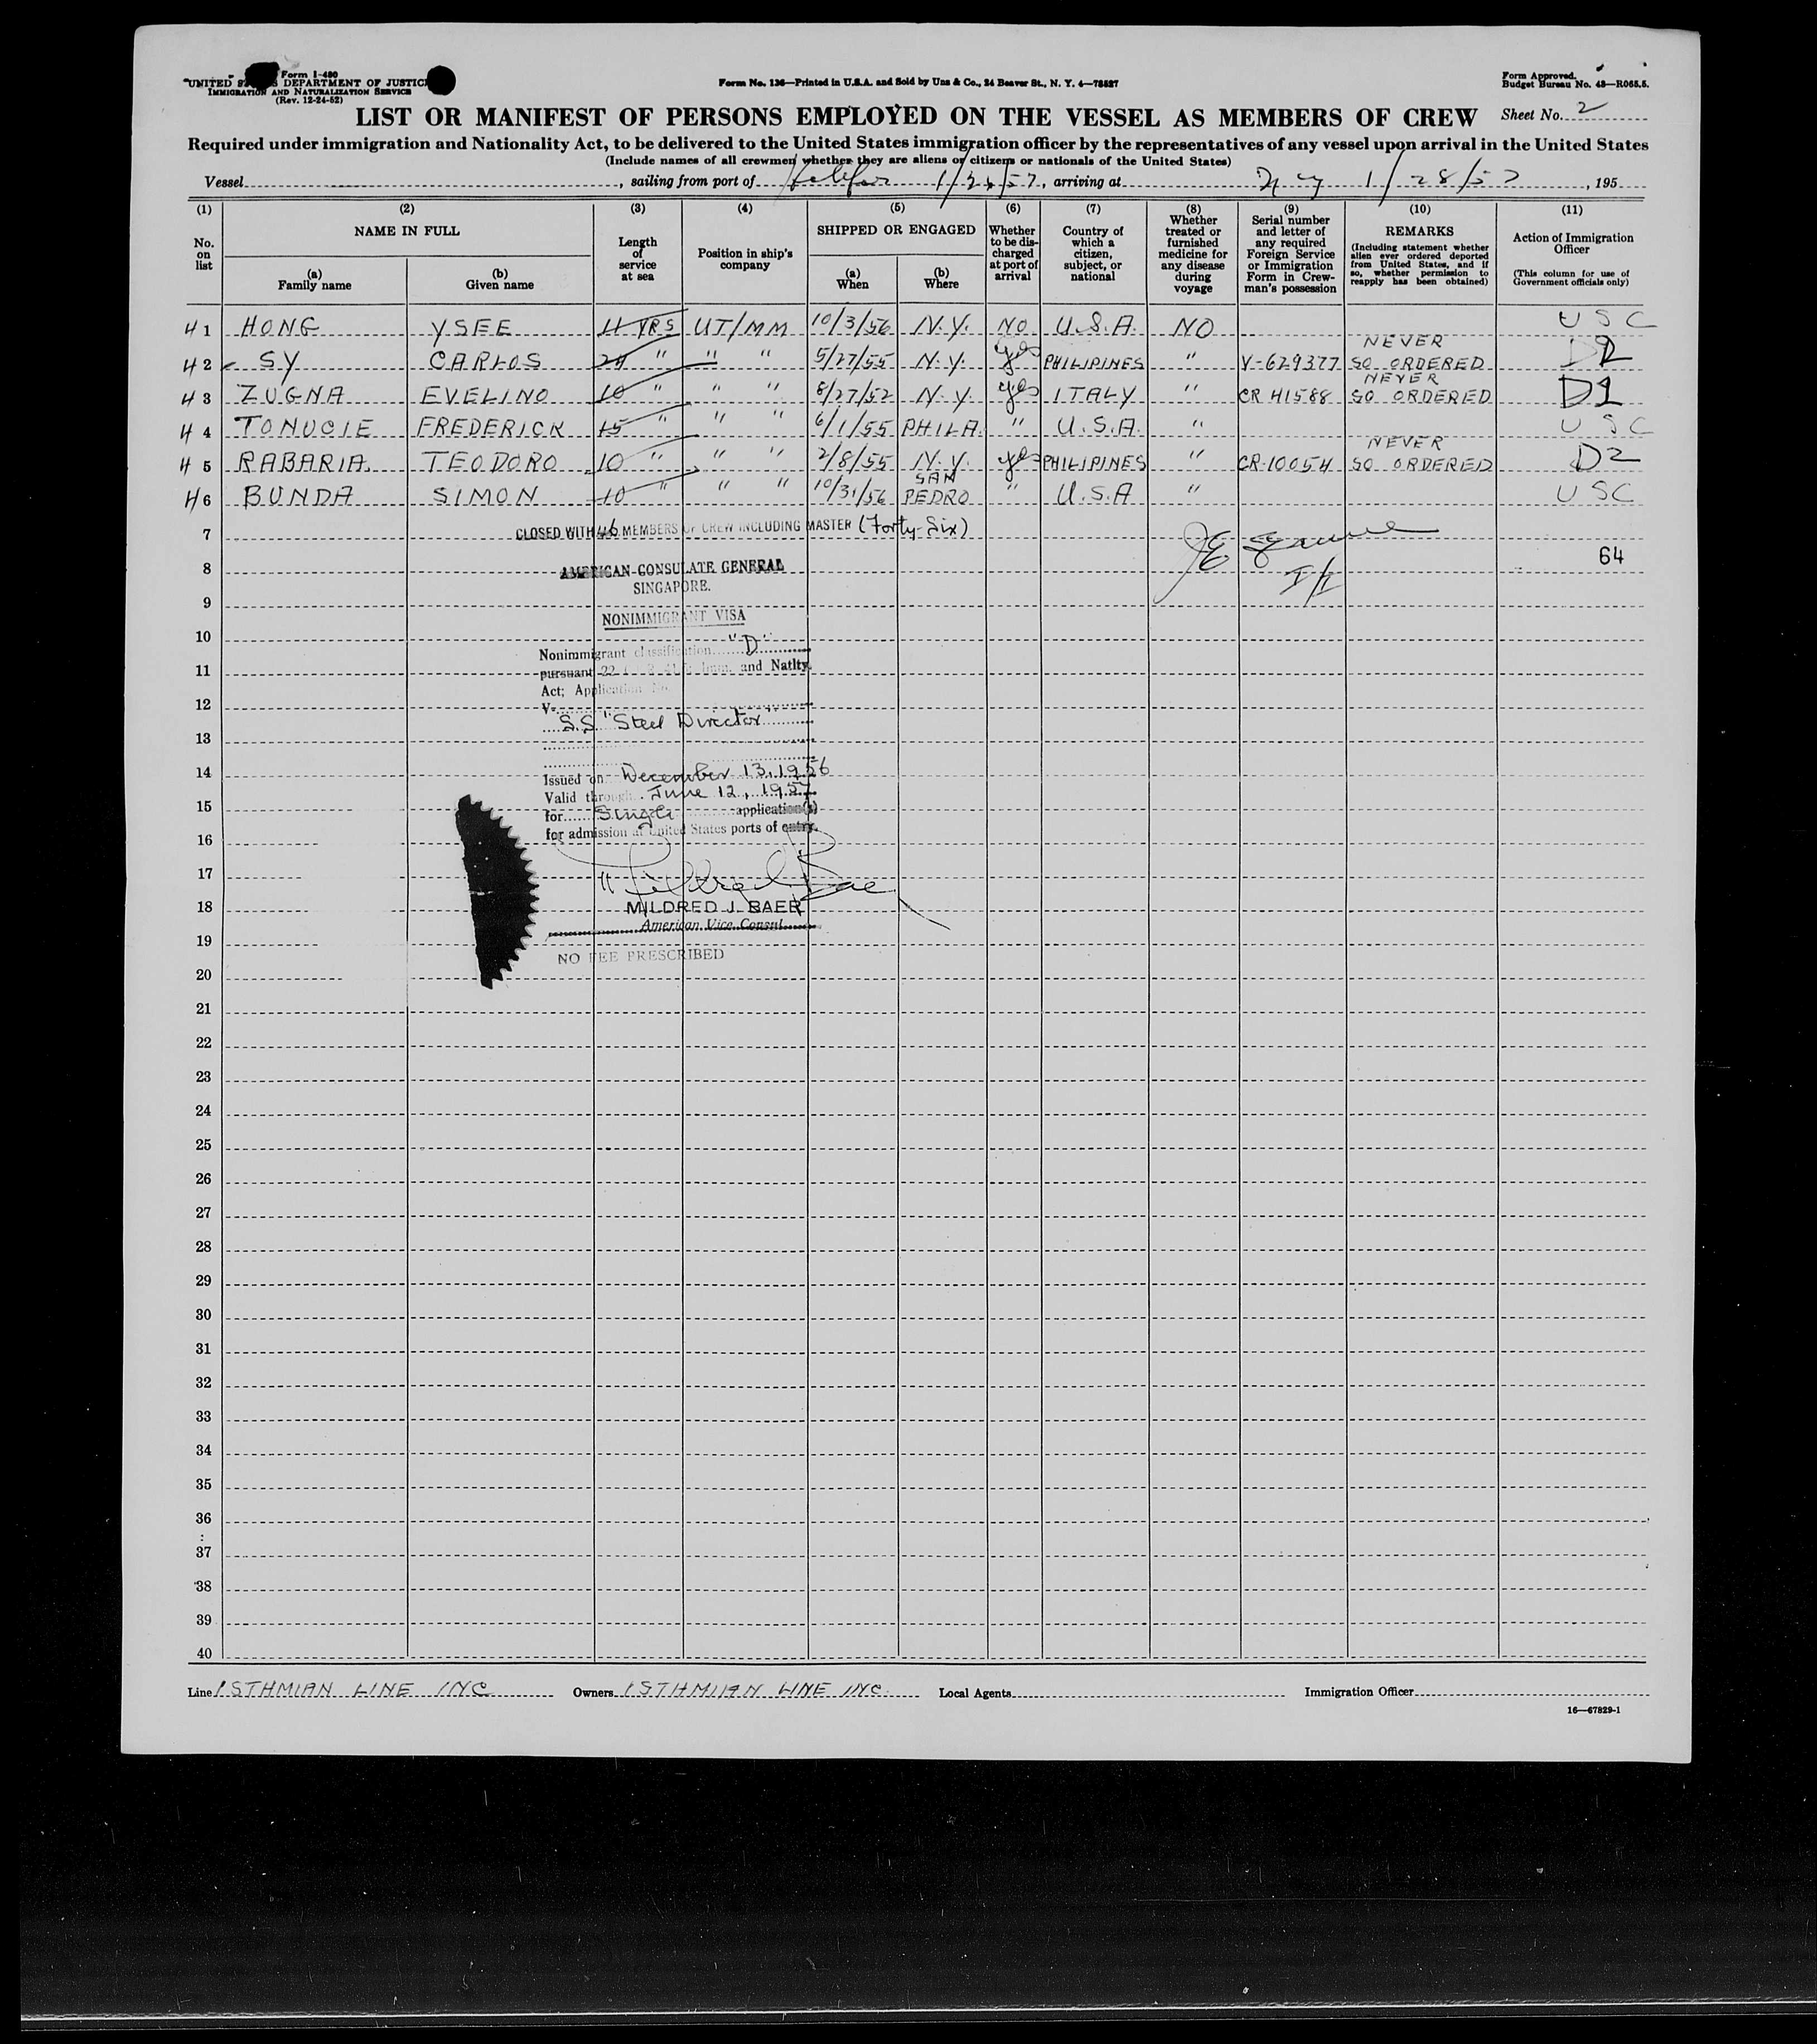 Form I-480
UNITED DEPARTMENT OF JUSTICE
IMMIGRATION AND NATURALIZATION SERVICE
(Rev. 12-24-52)
Form No. 136—Printed in U.S.A. and Sold by Unz & Co., 24 Beaver St., N. Y. 4—78527
Form Approved.
Budget Bureau No. 43—R065.5.
LIST OR MANIFEST OF PERSONS EMPLOYED ON THE VESSEL AS MEMBERS OF CREW
Sheet No. 2
Required under immigration and Nationality Act, to be delivered to the United States immigration officer by the representatives of any vessel upon arrival in the United States
(Include names of all crewmen whether they are aliens or citizens or nationals of the United States)
Vessel , sailing from port of Halifax 1/26/57, arriving at N Y 1/28/57, 195
(1) (2) (3) (4) (5) (6) (7) (8) (9) (10) (11)
No. on list
NAME IN FULL
(a) Family name
(b) Given name
Length of service at sea
Position in ship's company
SHIPPED OR ENGAGED
(a) When
(b) Where
Whether to be discharged at port of arrival
Country of which a citizen, subject, or national
Whether treated or furnished medicine for any disease during voyage
Serial number and letter of any required Foreign Service or Immigration Form in Crewman's possession
REMARKS
(Including statement whether alien ever ordered deported from United States, and if so, whether permission to reapply has been obtained)
Action of Immigration Officer
(This column for use of Government officials only)
41 HONG YSEE 11 YRS UT/MM 10/3/56 N.Y. NO U.S.A. NO USC
42 SY CARLOS 24 " " " 5/27/55 N.Y. yes PHILIPINES " V-629377 NEVER SO ORDERED D2
43 ZUGNA EVELINO 10 " " " 8/27/52 N.Y. yes ITALY " CR 41588 NEVER SO ORDERED D1
44 TONUCIE FREDERICK 15 " " " 6/1/55 PHILA. " U.S.A. " USC
45 RABARIA TEODORO 10 " " " 2/8/55 N.Y. yes PHILIPINES " CR-10054 NEVER SO ORDERED D2
46 BUNDA SIMON 10 " " " 10/31/56 SAN PEDRO " U.S.A " USC
7 CLOSED WITH 46 MEMBERS OF CREW INCLUDING MASTER (Forty-Six)
8 AMERICAN CONSULATE GENERAL 64
SINGAPORE.
9
NONIMMIGRANT VISA
10
Nonimmigrant classification "D"
11
pursuant 22 and Natlty.
Act; Application No.
12
V-
S.S. "Steel Director"
13
14
Issued on December 13, 1956
Valid through June 12, 1957
15
for Single application(s)
for admission at United States ports of entry.
16
17
Mildred J Baer
18
MILDRED J. BAER
American Vice Consul
19
NO FEE PRESCRIBED
20
21
22
23
24
25
26
27
28
29
30
31
32
33
34
35
36
37
38
39
40
Line ISTHMIAN LINE INC Owners ISTHMIAN LINE INC. Local Agents Immigration Officer
16—67829-1